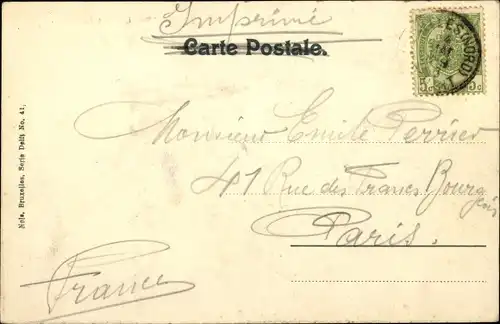 Imprimé
Carte Postale.
5c 5c
Nels, Bruxelles, Serie Delft No. 41.
Monsieur Emile Perrier
41 Rue des Francs Bourgeois
Paris.
France